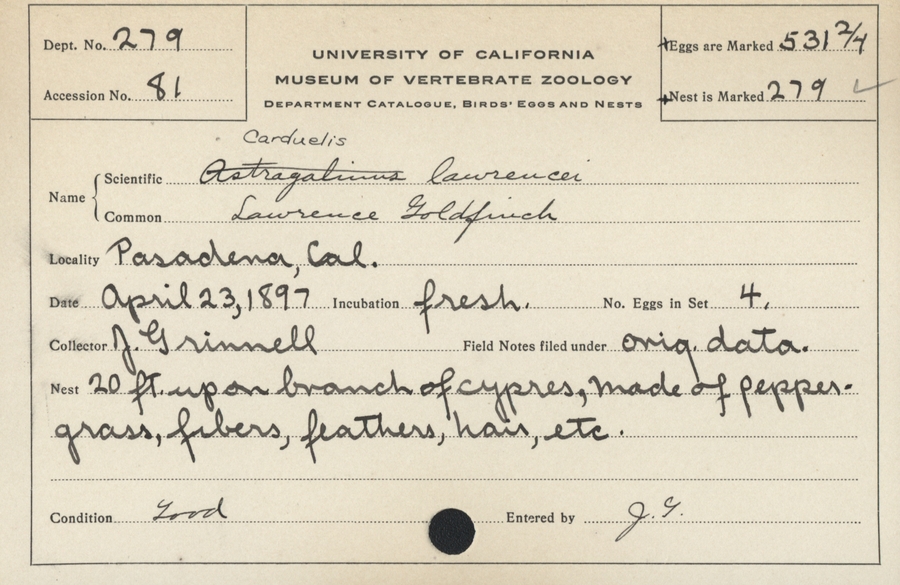 Dept. No. 279
Accession No. 81
UNIVERSITY OF CALIFORNIA
MUSEUM OF VERTEBRATE ZOOLOGY
DEPARTMENT CATALOGUE, BIRDS' EGGS AND NESTS
Eggs are Marked 531 2/4
Nest is Marked 279 ✓
Carduelis
Name Scientific Astragalinus lawrencei
Common Lawrence Goldfinch
Locality Pasadena, Cal.
Date April 23, 1897 Incubation fresh. No. Eggs in Set 4.
Collector J. Grinnell Field Notes filed under orig. data.
Nest 20 ft. up on branch of cypres, made of pepper-
grass, fibers, feathers, hair, etc.
Condition Good Entered by J. G.